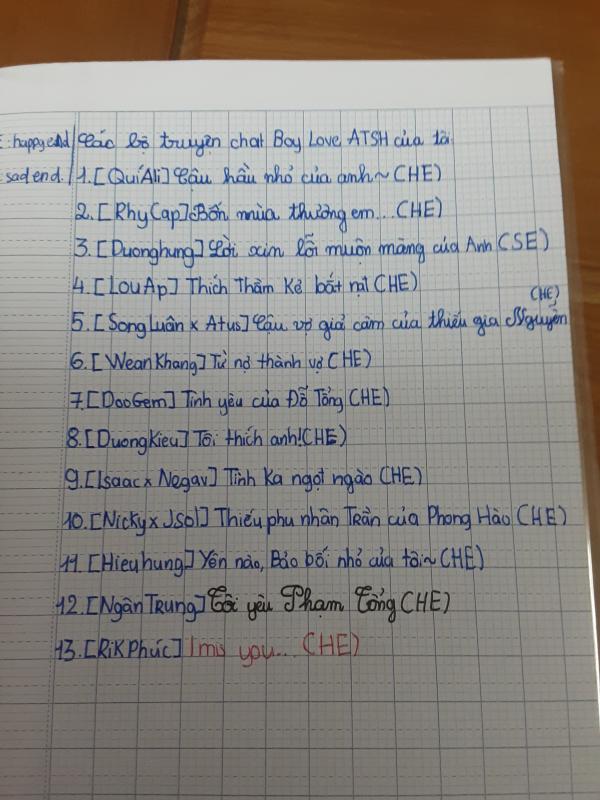 E: happy end
Các bộ truyện chat Boy Love ATSH của tôi
sad end.
1.[QuíAli] Cậu hầu nhỏ của anh~(HE)
2.[RhyCap] Bốn mùa thương em...(HE)
3.[Duonghung] Lời xin lỗi muộn màng của Anh (SE)
4.[LouAp] Thích Thầm Kẻ bắt nạt (HE)
5.[SongLuân x Atus] Cậu vợ giả câm của thiếu gia Nguyễn (HE)
6.[WeanKhang] Từ nợ thành vợ (HE)
7.[DooGem] Tình yêu của Đỗ Tổng (HE)
8.[DuongKieu] Tôi thích anh!(HE)
9.[Isaac x Negav] Tình Ka ngọt ngào (HE)
10.[Nicky x Jsol] Thiếu phu nhân Trần của Phong Hào (HE)
11.[Hieuhung] Yên nào, Bảo bối nhỏ của tôi~(HE)
12.[NgânTrung] Tôi yêu Phạm Tổng (HE)
13.[RiKPhúc] I mis you... (HE)